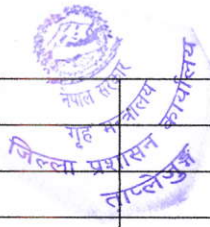 नेपाल सरकार
गृह मन्त्रालय
जिल्ला प्रशासन कार्यालय
ताप्लेजुङ्ग